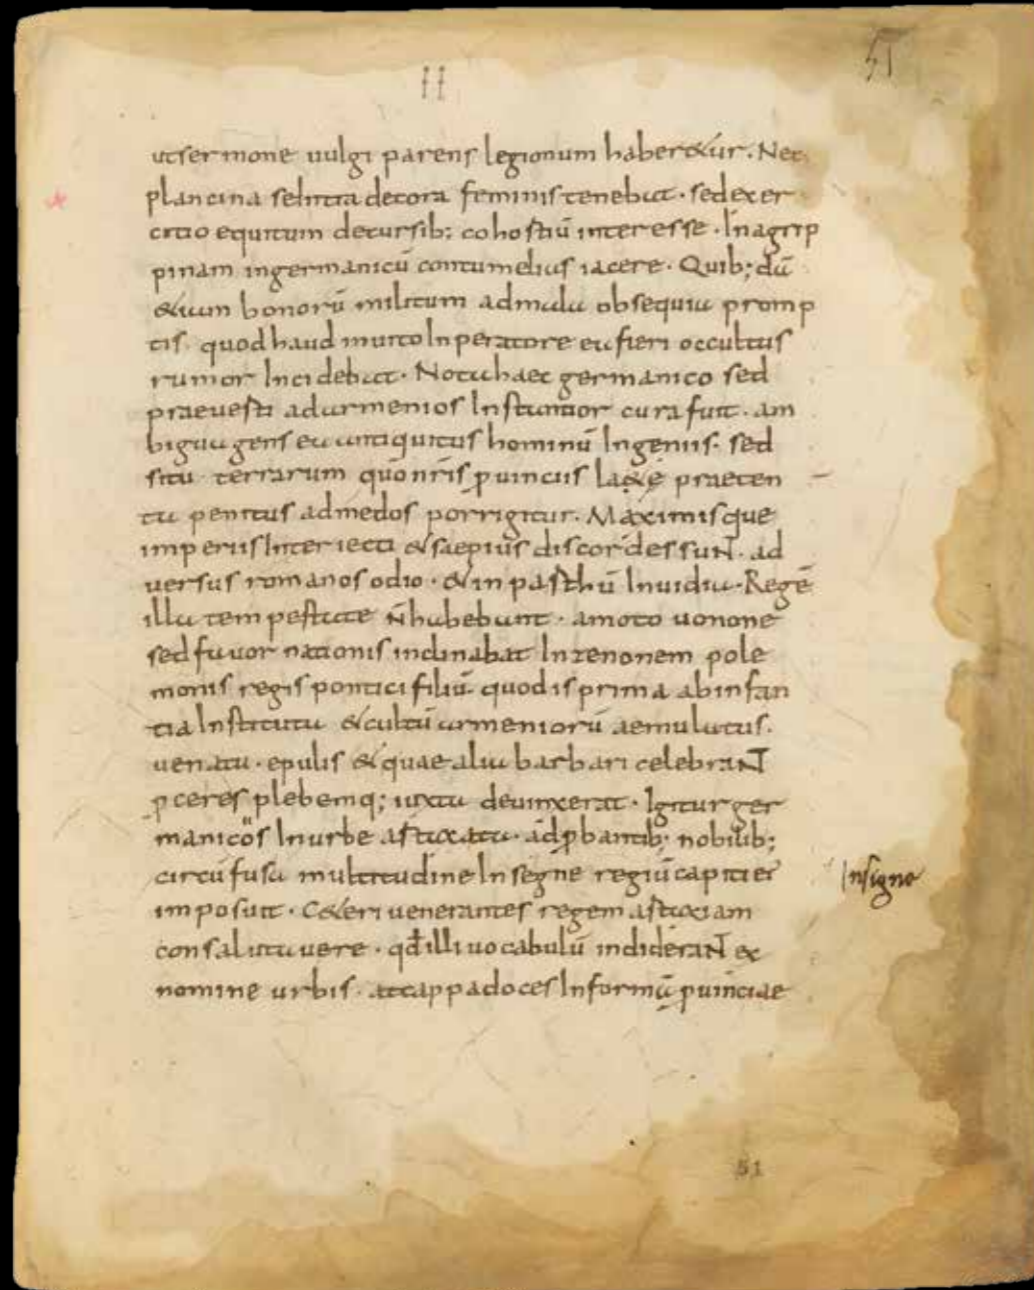 II
51
utsermone uulgi parens legionum haber&ur. Nec
plancina seintra decora feminis tenebat · sedexer
citio equitum decursib; cohostiū interesse · Inagrip
pinam ingermanicū contumelias iacere · Quib; dū
&iam bonorū militum admala obsequia promp
tis · quod haud inuitoInperatore eafieri occultus
rumor Incidebat · Notahaec germanico sed
praeuesti adarmenios Instantior cura fuit · am
biguagens ea antiquitus hominū Ingeniis · sed
situ terrarum quōnr̄is ꝓuinciis lat&ę praeten
ta penitus admedos porrigitur. Maximisque
imperiisInteriecti &saepius discordessuNt · ad
uersus romanos odio · &inpasthū Inuidia · Regē
illa tempestate n̄habebant · amoto uonone
sed fauor nationis inclinabat Inzenonem pole
monis regis pontici filiū quodisprima abinfan
tia Instituta &cultū armeniorū aemulatus ·
uenatu · epulis &quae alia barbari celebraNT
ꝓceres plebemq; iuxta deuinxerat · Igitur ger
manicös Inurbe astaxata · adꝓbantib; nobilib;
circūfusa multitudine Insegne regiū capitiei
imposuit · C&eri uenerantes regem astaxiam
consalutauere · qđilli uocabulū indideraNt ex
nomine urbis · atcappadoces Informā ꝓuinciae
Insigne
51